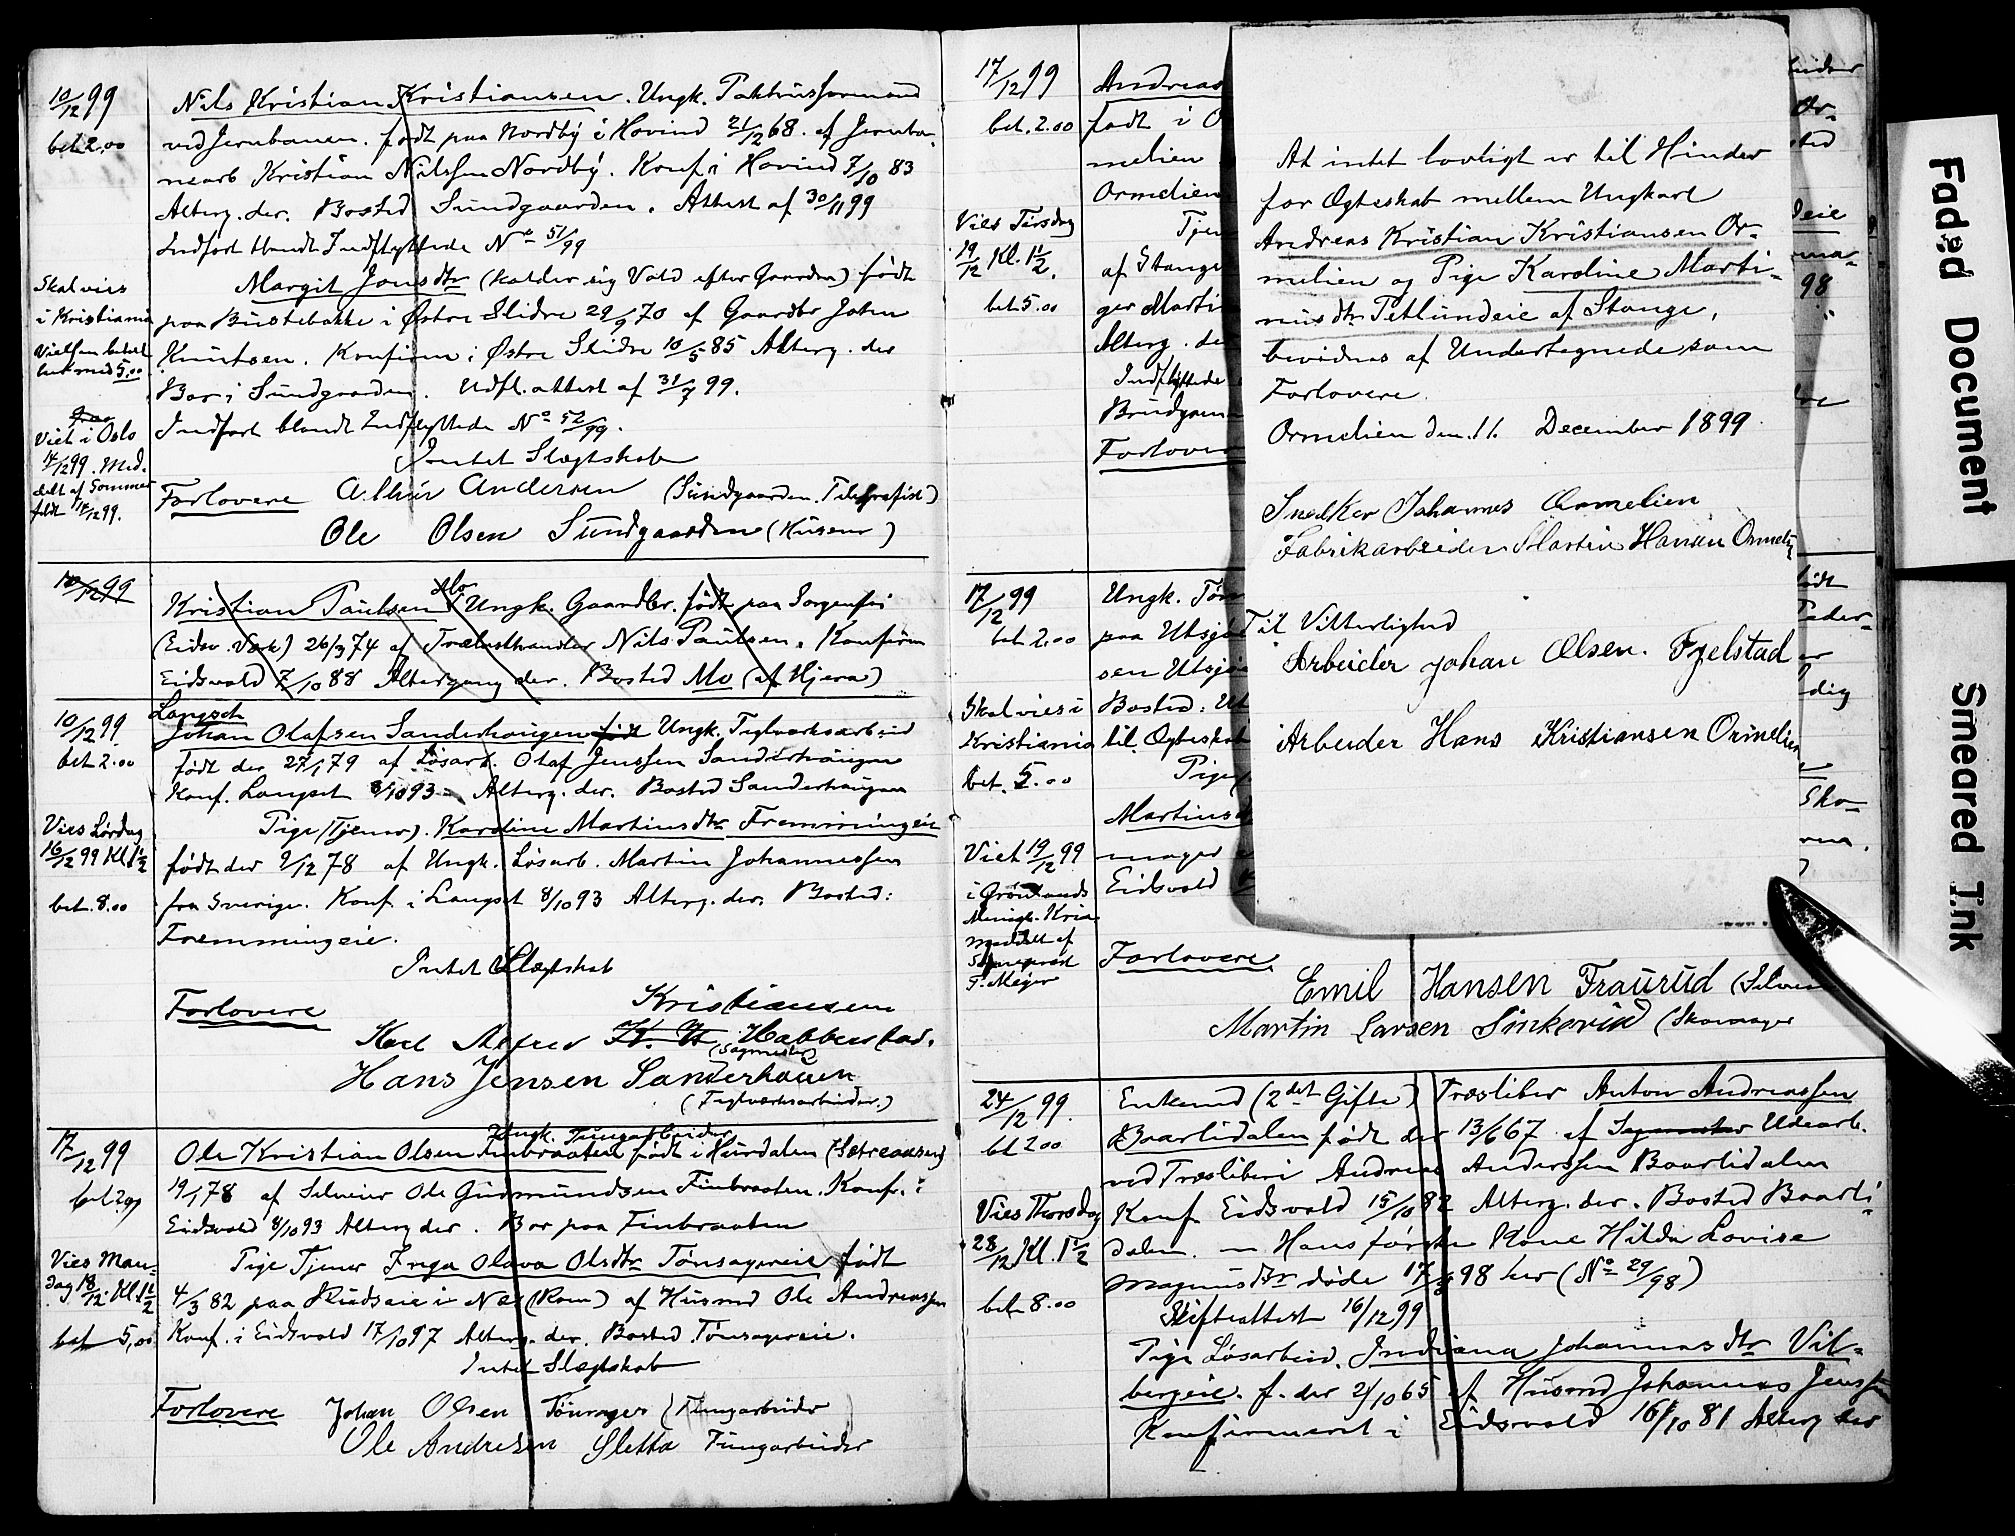 10/12 99
bet 2.00
Nils Kristian Kristiansen. Ungk. Pakhusformand
ved Jernbanen. født paa Nordby i Hovind 21/12 68. af Jernba-
nearb Kristian Nilssen Nordby. Konf i Hovind 7/10 83
Alterg. der. Bosted Sundgaarden. Attest af 30/11 99
Indført blandt Indflyttede No 51/99
Skal vies
i Kristiania
Vielsen betalt
5.00
Viet i Oslo
14/12 99. Med-
delt af Sommer
feldt 14/12 99.
Margit Jonsdtr (kalder sig Vold efter Gaarden) født
paa Bustebakke i Østre Slidre 29/9 70 af Gaardbr John
Knutsen. Konfirm i Østre Slidre 10/5 85 Alterg. der
Bor i Sundgaarden. Udfl. attest af 31/7 99.
Indført blandt Indflyttede No 52/99.
Intet Slægtskab
Forlovere Andersen (Sundgaarden. Telegrafist)
Ole Olsen Sundgaarden (Huseier)
10/12 99
Kristian Paulsen Mo Ungk. Gaardbr. født paa Sorgenfri
(Eidsv. Værk) 26/3 74 af Trælasthandler Nils Paulsen. Konfirm
Eidsvold 7/10 88 Altergang der. Bosted Mo (af Hjera)
10/12 99
bet 2.00
Langset
Johan Olafsen Sanderhaugen født Ungk. Teglværksarbeid
født der 27/1 79 af Løsarb. Olaf Jenssen Sanderhaugen
Konf. Langset 8/10 93 - Alterg. der. Bosted Sanderhaugen
Vies Lørdag
16/12 99 Kl. 1 1/2
bet. 8.00
Pige (Tjener). Karoline Martinsdtr Fremmingeie
født der 2/12 78 af Ungk. Løsarb. Martin Johannessen
fra Sverige. Konf. i Langset 8/10 93 Alterg. der. Bosted:
Fremmingeie.
Intet Slægtskab
Forlovere
Kristiansen
Karl Alfred Habberstad.
(Sagmester)
Hans Jensen Sanderhauen
(Teglværksarbeider.)
17/12 99
bet 2.00
Ungk. Tungarbeider
Ole Kristian Olsen Finbraaten født i Hurdalen (Sætreausen)
19/1 78 af Selveier Ole Gudmundsen Finbraaten. Konf. i
Eidsvold 8/10 93 Alterg der. Bor paa Finbraaten
Vies Man-
dag 18/12. Kl. 1 1/2
bet 5.00
Pige Tjener Inga Olava Olsdtr Tønsagereie født
4/3 82 paa Rudseie i Næs (Rom) af Husmd Ole Andreassen
Konf. i Eidsvold 17/10 97 Alterg. der. Bosted Tønsagereie.
Intet Slægtskab
Forlovere Johan Olsen Tønsager (Tungarbeider
Ole Andresen Sletta Tungarbeider
17/12 99
bet. 2.00
Andreas
født i O
melien
Ormelien
Vies Tirsdag
19/12 Kl. 1 1/2.
bet 5.00
Tjen
af Stange
ger Marti
Alterg. de
Indflyttede
Brudgom
Forlover
17/12 99
bet 2.00
Skal vies i
Kristiania
bet. 5.00
Ungk. Tøm
paa Utsjø
sen Utsjø
Bosted: Ut
til Ægteskab
Pige
Martinsd
mager
Eidsvold
Viet 19/12 99
i Grønlands
Menigh. Kria
meddelt af
Sogneprest
F. Meyer
Forlovere
Emil Hansen Fraurud (Selveier
Martin Larsen Sinkerud (Skomager
At intet lovligt er til Hinder
for Ægteskab mellem Ungkarl
Andreas Kristian Kristiansen Or-
melien og Pige Karoline Marti-
nusdtr Tetlundeie af Stange,
bevidnes af Undertegnede som
Forlovere.
Ormelien den 11. December 1899
Snedker Johannes Ormelien
Fabrikarbeider Martin Hansen Ormeli
Til Vitterlighed
Arbeider Johan Olsen. Fjelstad
Arbeider Hans Kristiansen Ormelien
24/12 99.
bet 2.00
Vies Thorsdag
28/12 Kl. 1 1/2
bet 8.00
Enkemd (2det Gifte) Træsliber Anton Andreassen
Baarlidalen født der 13/6 67 af Udearb.
ved Træsliberi Andreas Anderssen Baarlidalen
Konf. Eidsvold 15/10 82 Alterg. der. Bosted Baarli-
dalen. — Hans første Kone Hilda Lovise
Magnusdtr døde 17/3 98 her (No 29/98)
Skifteattest 16/12 99
Pige Løsarbeid. Indiana Johannesdtr Vil-
bergeie. f. der 2/10 65 af Husmd Johannes Jenssen
Konfirmeret i Eidsvold 16/10 81 Alterg der
Faded Document
Smeared Ink